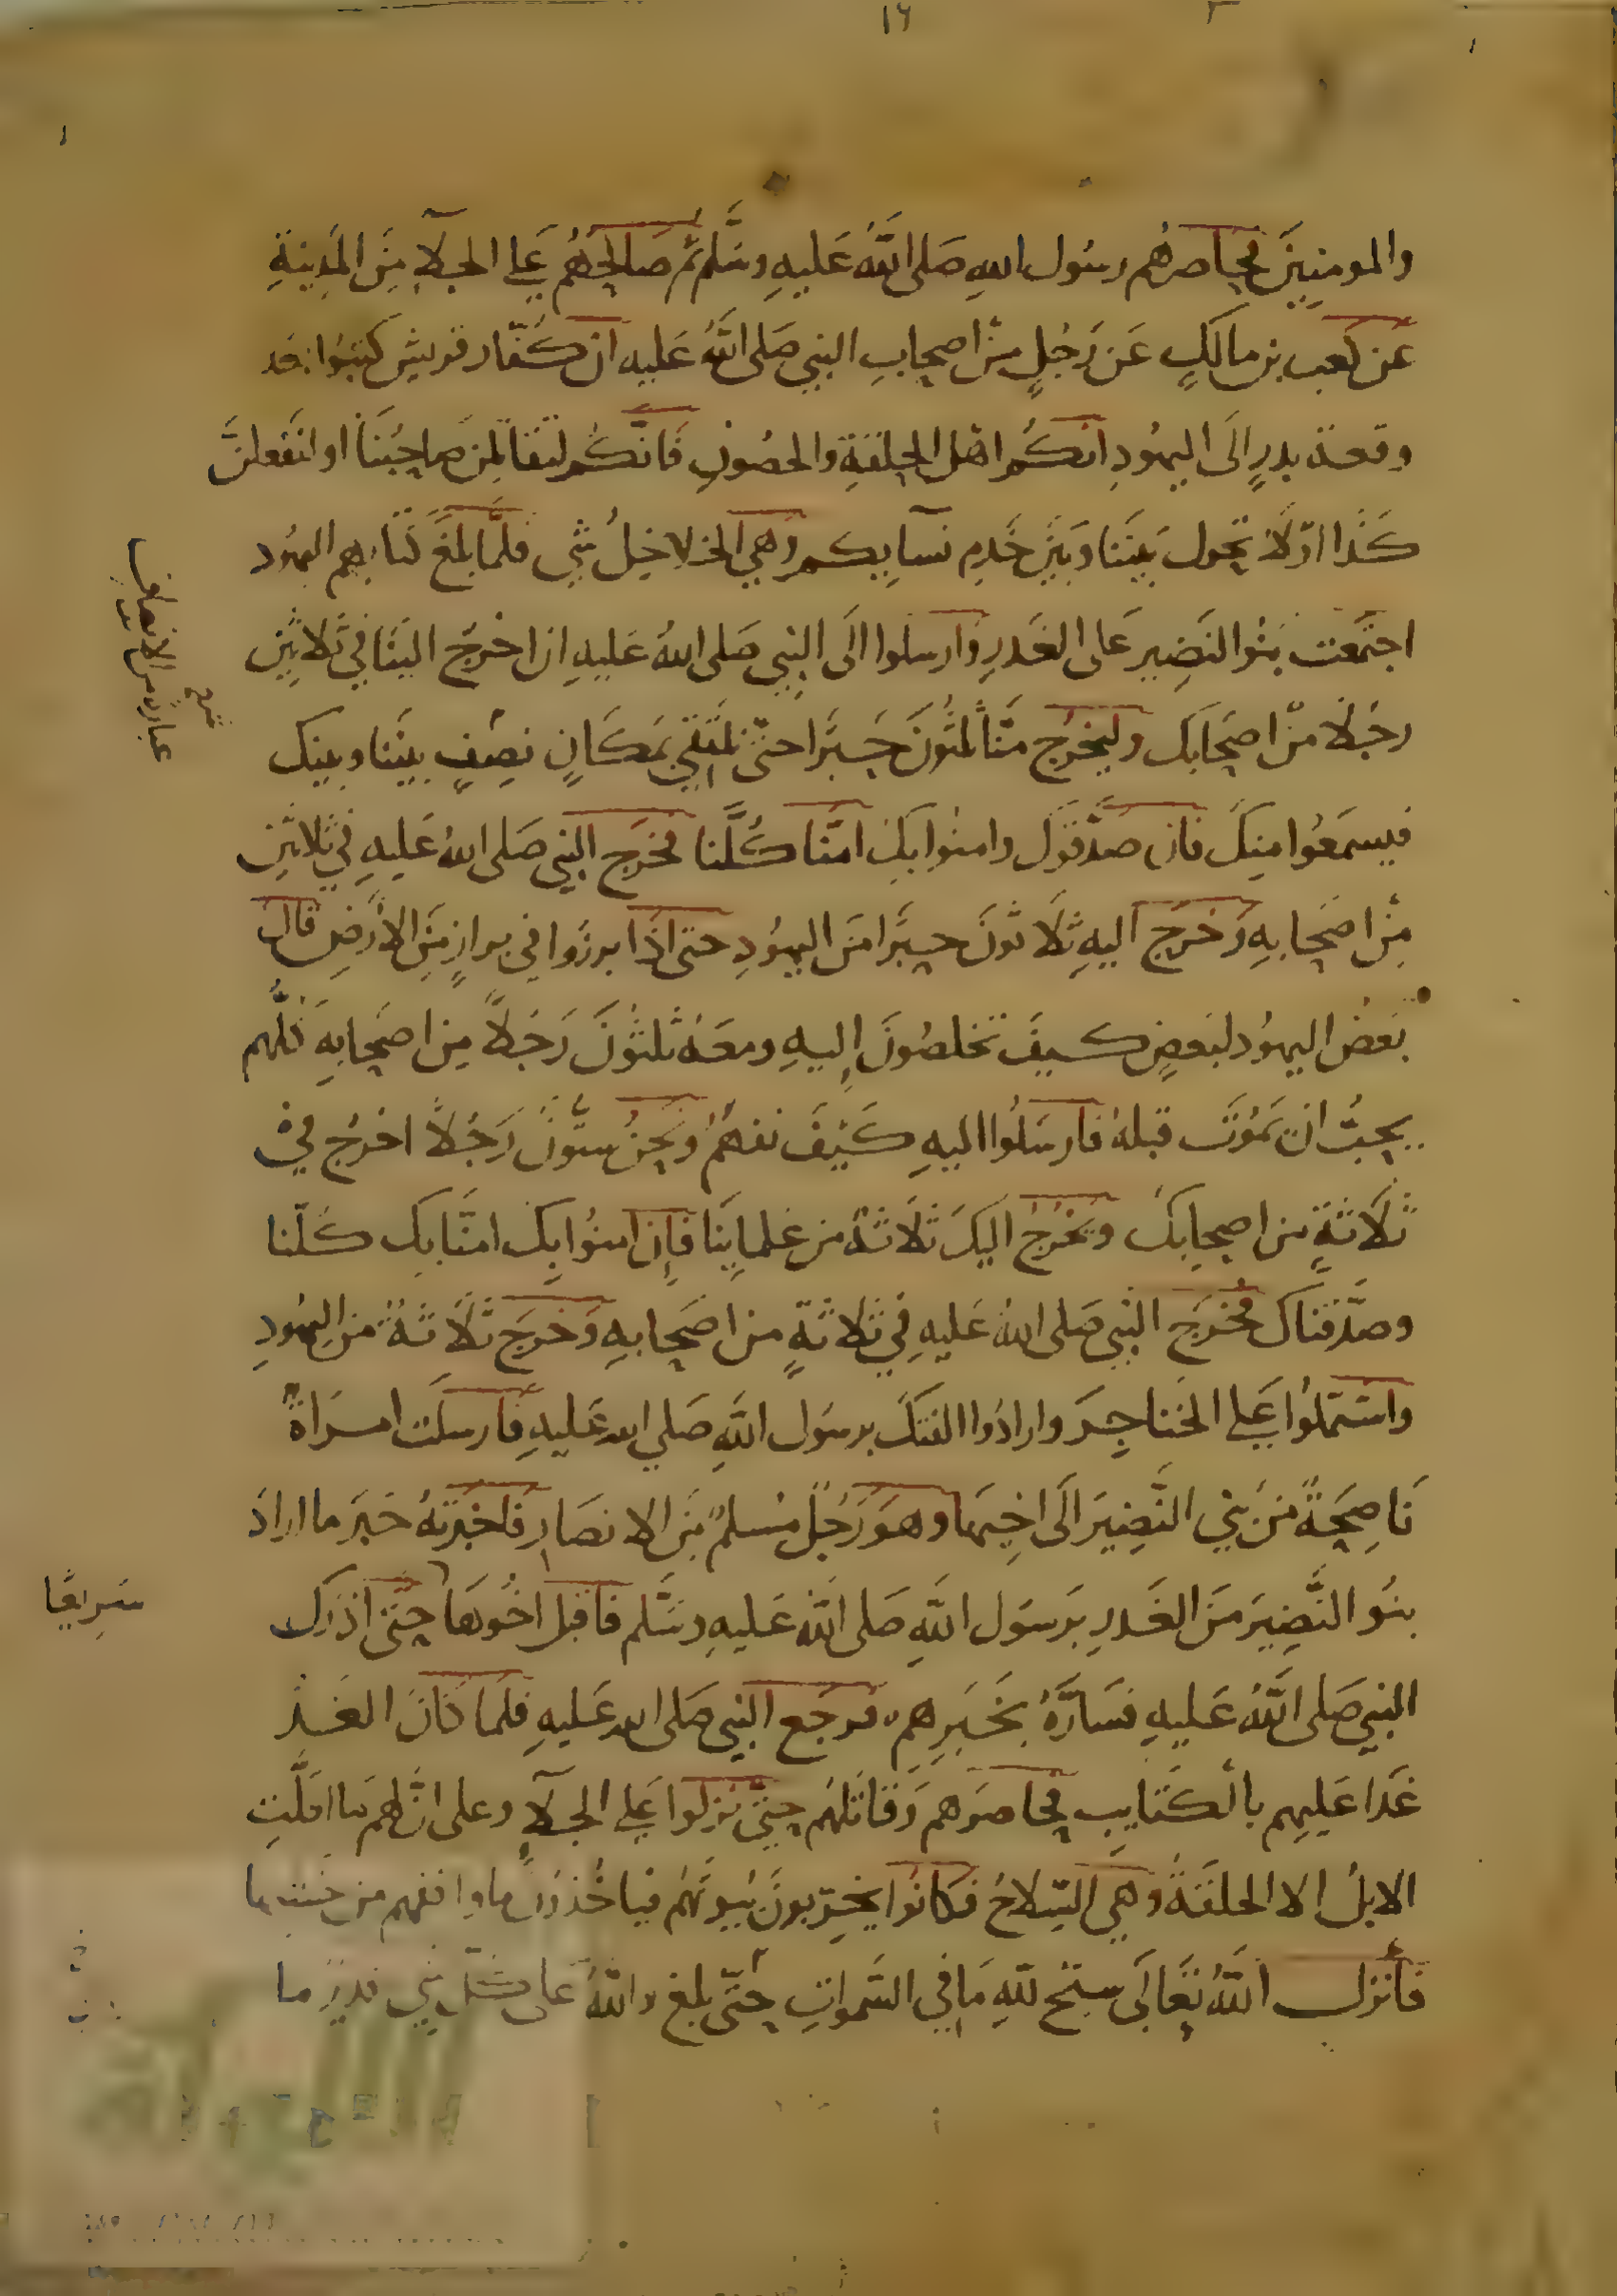 ١٦
والمومنين فحاصرهم رسول الله صلى الله عليه وسلم ثم صالحهم على الجلاء من المدينة
عن كعب بن مالك عن رجل من اصحاب النبي صلى الله عليه ان كفار قريش كتبوا بعد
وقعة بدر الى اليهود انكم اهل الحلقة والحصون فانكم لتقاتلن صاحبنا او لنفعلن
كذا اولا تحول بيننا وبين خدم نسايكم وهي الخلاخيل شي فلما بلغ كتابهم اليهود
اجتمعت بنو النضير على الغدر وارسلوا الى النبي صلى الله عليه ان اخرج الينا في ثلاثين
رجلا من اصحابك وليخرج منا ثلثون حبرا حتى نلتقي بمكان نصف بيننا وبينك
فيسمعوا منك فان صدقوك وامنوا بك امنا كلنا فخرج النبي صلى الله عليه في ثلاثين
من اصحابه وخرج اليه ثلاثون حبرا من اليهود حتى اذا برزوا في براز من الارض قال
بعض اليهود لبعض كيف تخلصون اليه ومعه ثلثون رجلا من اصحابه كلهم
يحب ان يموت قبله فارسلوا اليه كيف نفهم ونحن ستون رجلا اخرج في
ثلاثة من اصحابك ويخرج اليك ثلاثة من علماينا فان امنوا بك امنا بك كلنا
وصدقناك فخرج النبي صلى الله عليه في ثلاثة من اصحابه وخرج ثلاثة من اليهود
واشتملوا على الخناجر وارادوا الفتك برسول الله صلي الله عليه فارسلت امراة
ناصحة من بني النضير الى اخيها وهو رجل مسلم من الانصار فاخبرته خبر ما اراد
بنو النضير من الغدر برسول الله صلى الله عليه وسلم فاقبل اخوها حتى ادرك
سريعا
النبي صلى الله عليه فساره بخبرهم فرجع النبي صلى الله عليه فلما كان الغد
غدا عليهم بالكتايب فحاصرهم وقاتلهم حتى نزلوا على الجلاء وعلى ان لهم ما اقلت
الابل الا الحلقة وهي السلاح فكانوا يخربون بيوتهم فياخذون ما وافقهم من خشبها
فانزل الله تعالى سبح لله ما في السموات حتى بلغ والله على كل شي قدير ما